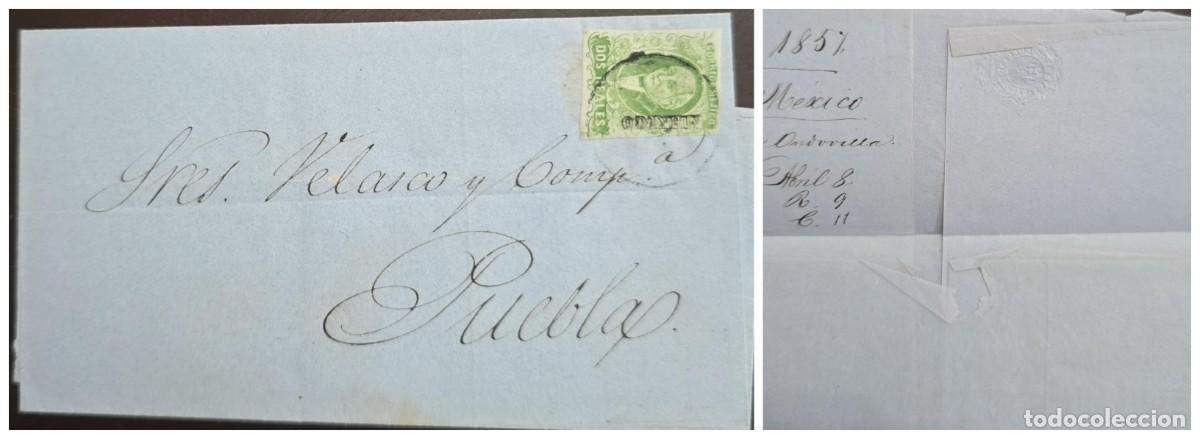 DOS REALES
CORREOS MEJICO
MEXICO
Sres. Velasco y Comp.a
Puebla.
1857.
México
Ondovilla.
Abril 8.
R. 9
C. 11
todocoleccion